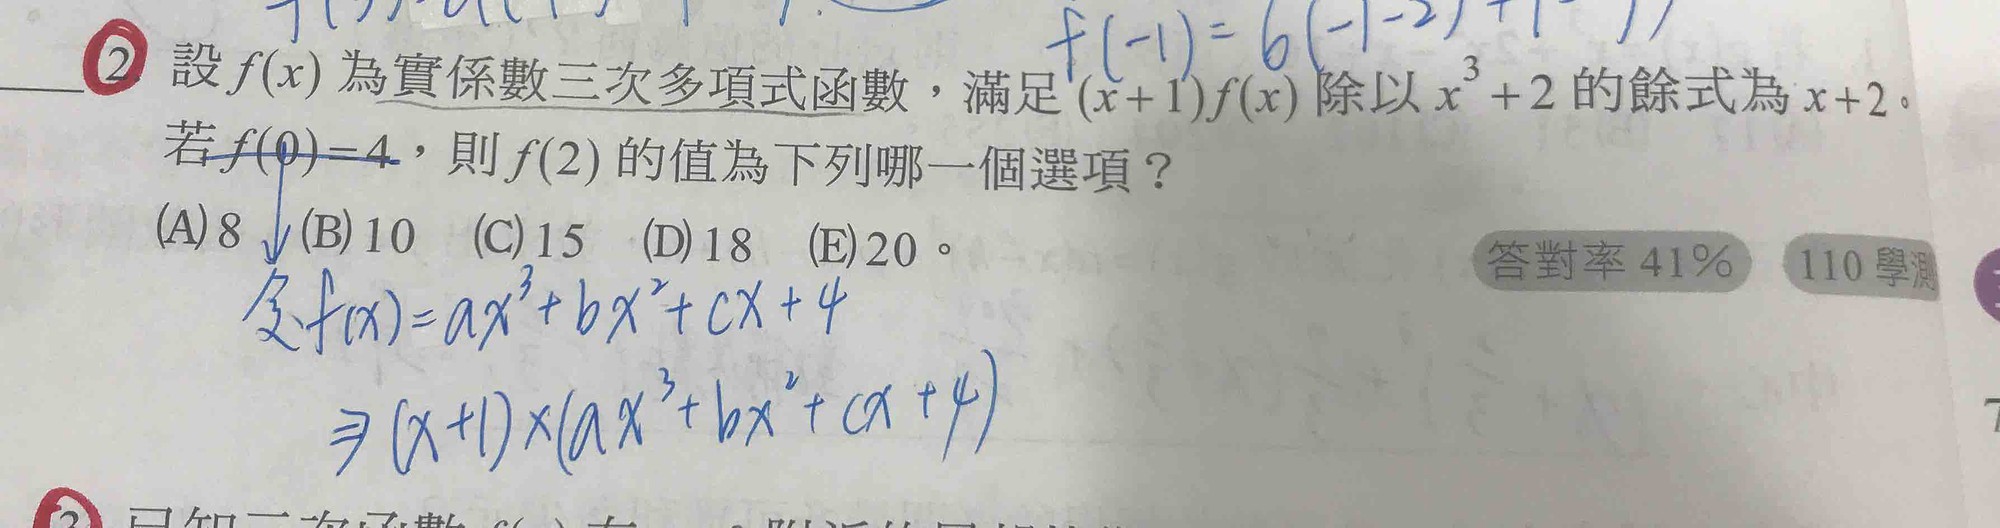 f(-1)=6(-1-2)
2. 設 f(x) 為實係數三次多項式函數，滿足 (x+1)f(x) 除以 x³+2 的餘式為 x+2。
若 f(0)=4，則 f(2) 的值為下列哪一個選項？
(A) 8 (B) 10 (C) 15 (D) 18 (E) 20。
答對率 41% 110 學測
令f(x)=ax³+bx²+cx+4
⇒(x+1)×(ax³+bx²+cx+4)